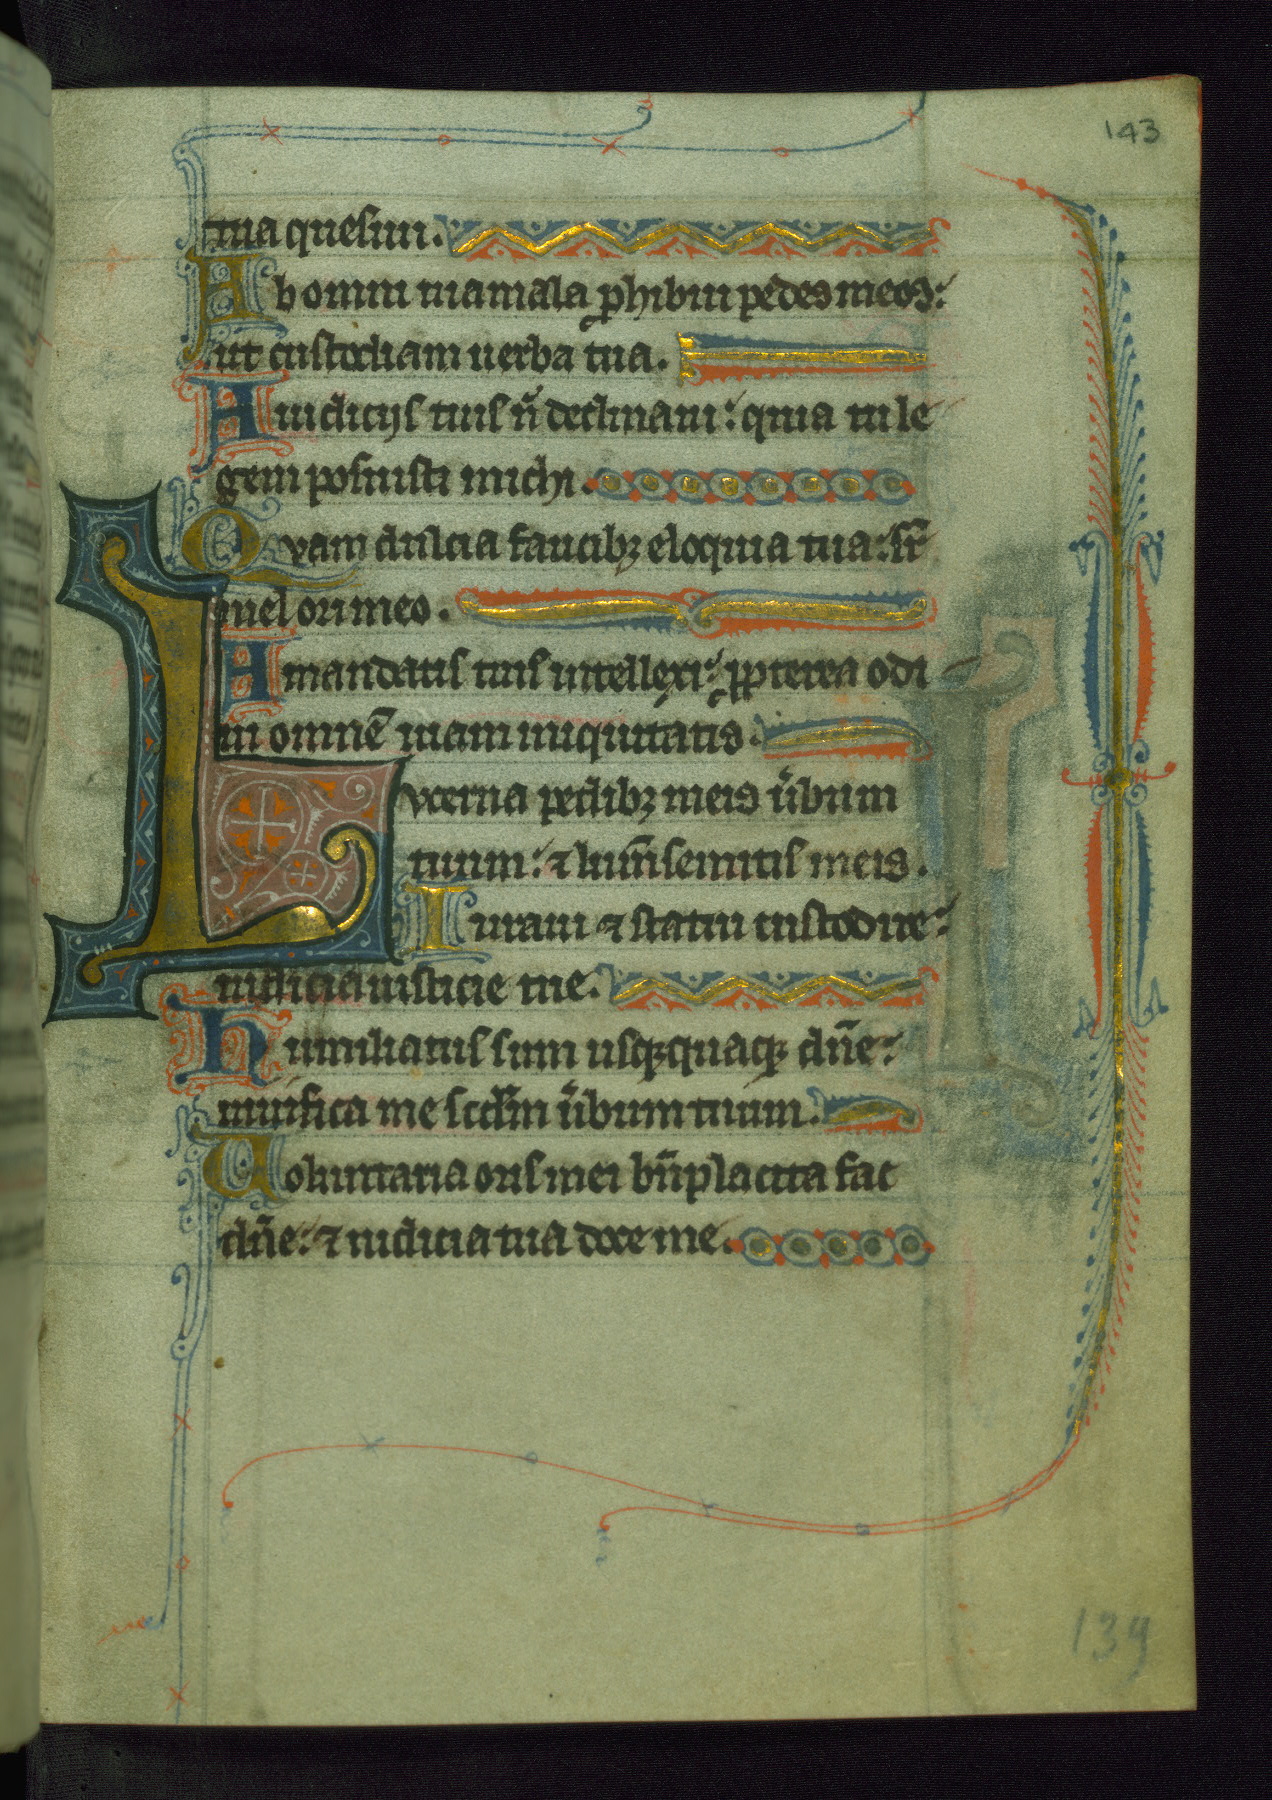 143
tua quesiui.
Ab omni uia mala ꝓhibui pedes meos:
ut custodiam uerba tua.
A iudicijs tuis ñ declinaui: quia tu le
gem posuisti michi.
Quam dulcia faucibꝫ eloquia tua: sr̃
mel ori meo.
A mandatis tuis intellexi: ꝓpterea odi
ui omnẽ uiam iniquitatis.
Lucerna pedibꝫ meis ũbum
tuum: ⁊ lum̃ semitis meis.
Iuraui ⁊ statui custodire:
iudicia iusticie tue.
Humiliatus sum usqꝫquaqꝫ dñe:
uiuifica me scdm̃ ũbum tuum.
Uoluntaria oris mei bñplacita fac
dñe: ⁊ iudicia tua doce me.
139